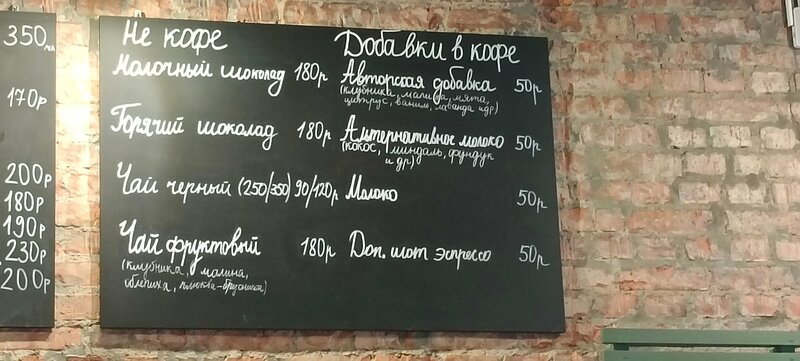 350 мл
170р
200р
180р
190р
230р
200р
Не кофе
Молочный шоколад 180р
Горячий шоколад 180р
Чай черный (250/350) 90/120р
Чай фруктовый 180р
(клубника, малина,
облепиха, клюква-брусника)
Добавки в кофе
Авторская добавка 50р
(клубника, малина, мята,
цитрус, ваниль, лаванда и др)
Альтернативное молоко 50р
(кокос, миндаль, фундук
и др)
Молоко 50р
Доп. шот эспрессо 50р